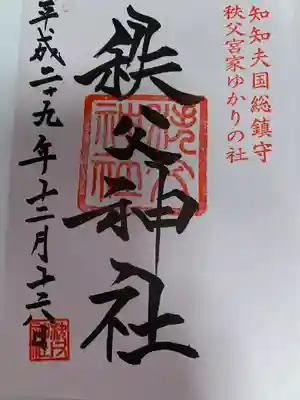 知知夫国総鎮守
秩父宮家ゆかりの社
秩父神社
平成二十九年十二月十六日